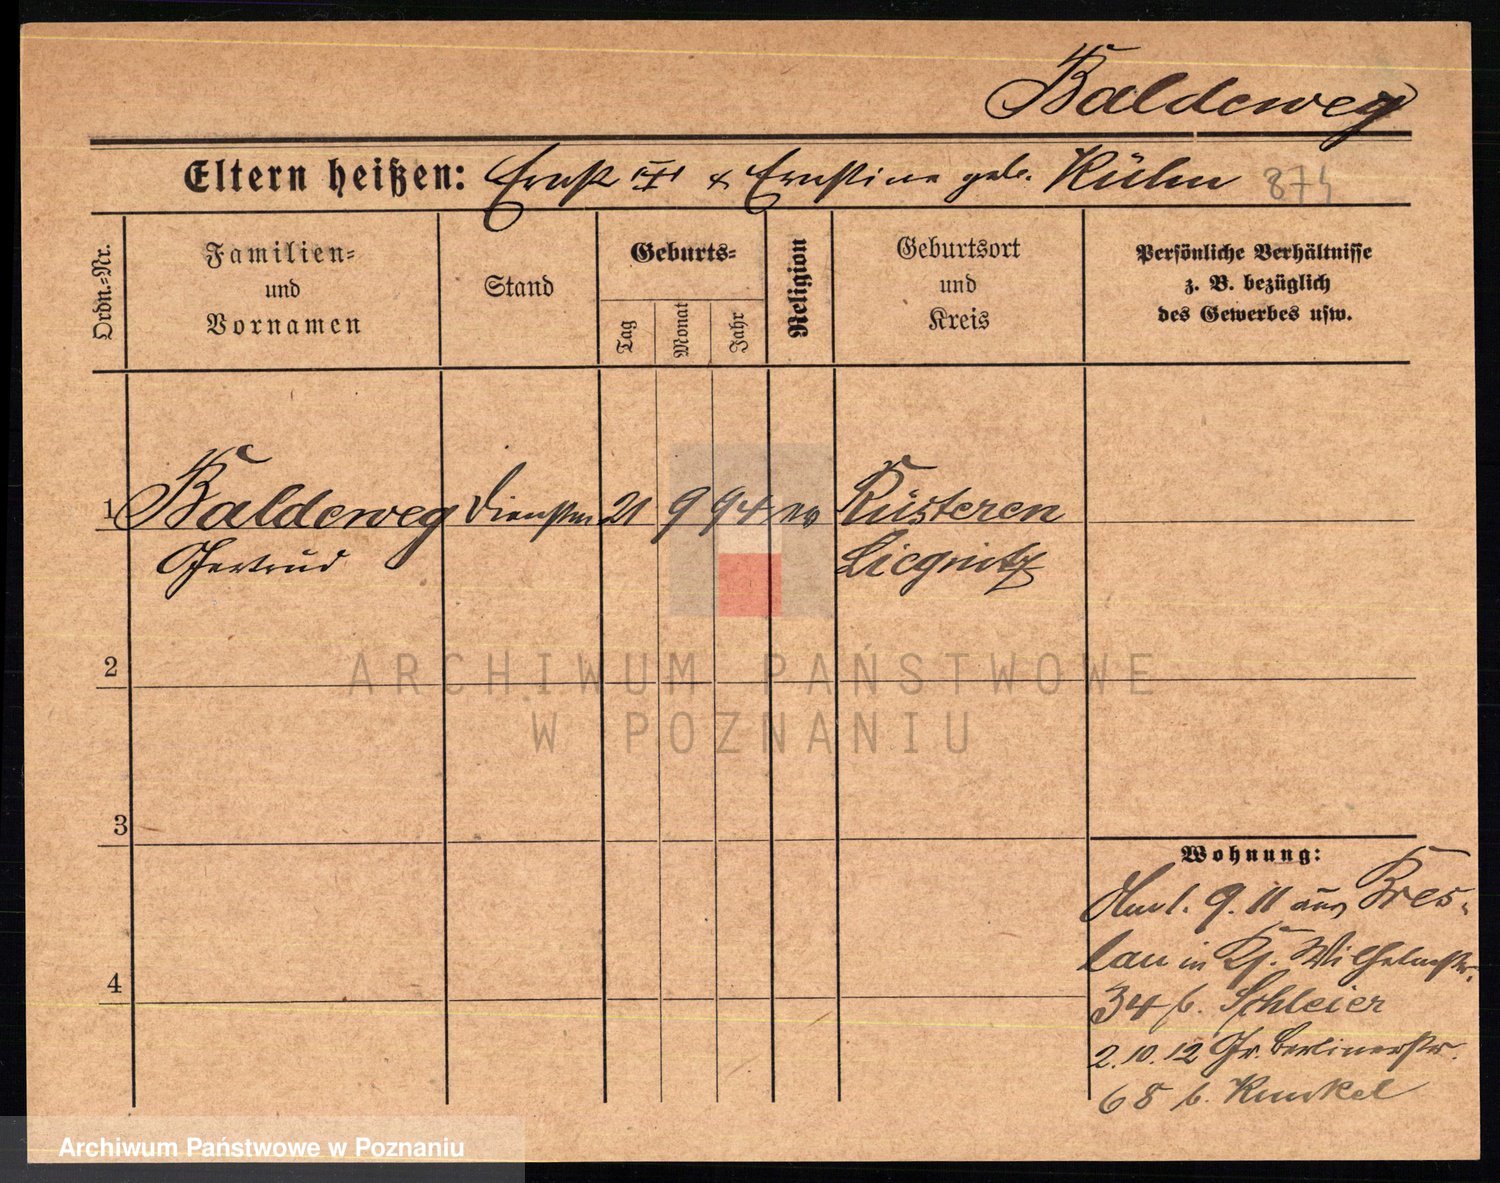 Baldeweg
Eltern heißen: Ernst III & Ernstine geb. Kühn 874
Ordn.-Nr.
Familien-
und
Vornamen
Stand
Geburts-
Tag
Monat
Jahr
Religion
Geburtsort
und
Kreis
Persönliche Verhältnisse
z. B. bezüglich
des Gewerbes usw.
1 Baldeweg Dienstm 21 9 94 ev Küsteren
Gertrud Liegnitz
2
3
4
Wohnung:
9. 11 aus Bres-
lau in Wilhelmstr.
34 b. Schleier
2. 10. 12 Gr. Berlinerstr.
68 b. Kunkel
ARCHIWUM PAŃSTWOWE
W POZNANIU
Archiwum Państwowe w Poznaniu